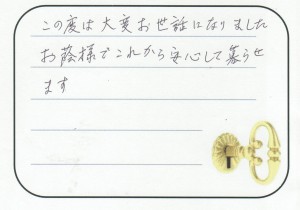 この度は大変お世話になりました
お蔭様でこれから安心して暮らせ
ます